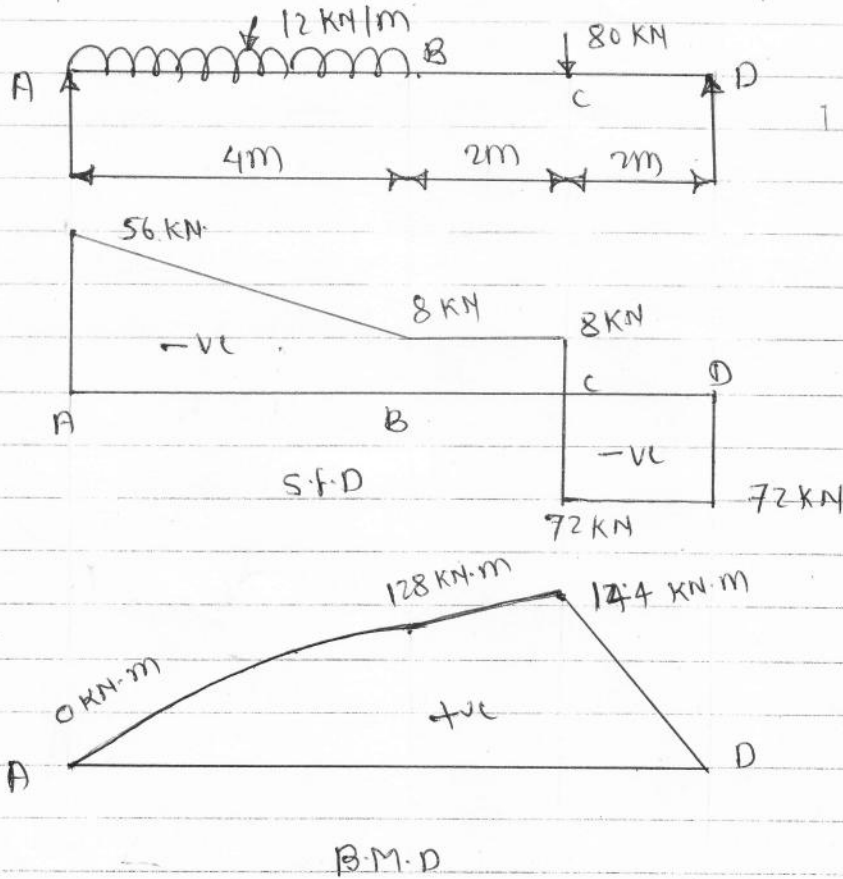 12 KN/m
B
80 KN
A
D
C
4m
2m
2m
56 KN.
8 KN
8 KN
-ve
C
D
A
B
-ve
S.F.D
72 KN
72 KN
128 KN.m
144 KN.m
0 KN.m
+ve
A
D
B.M.D